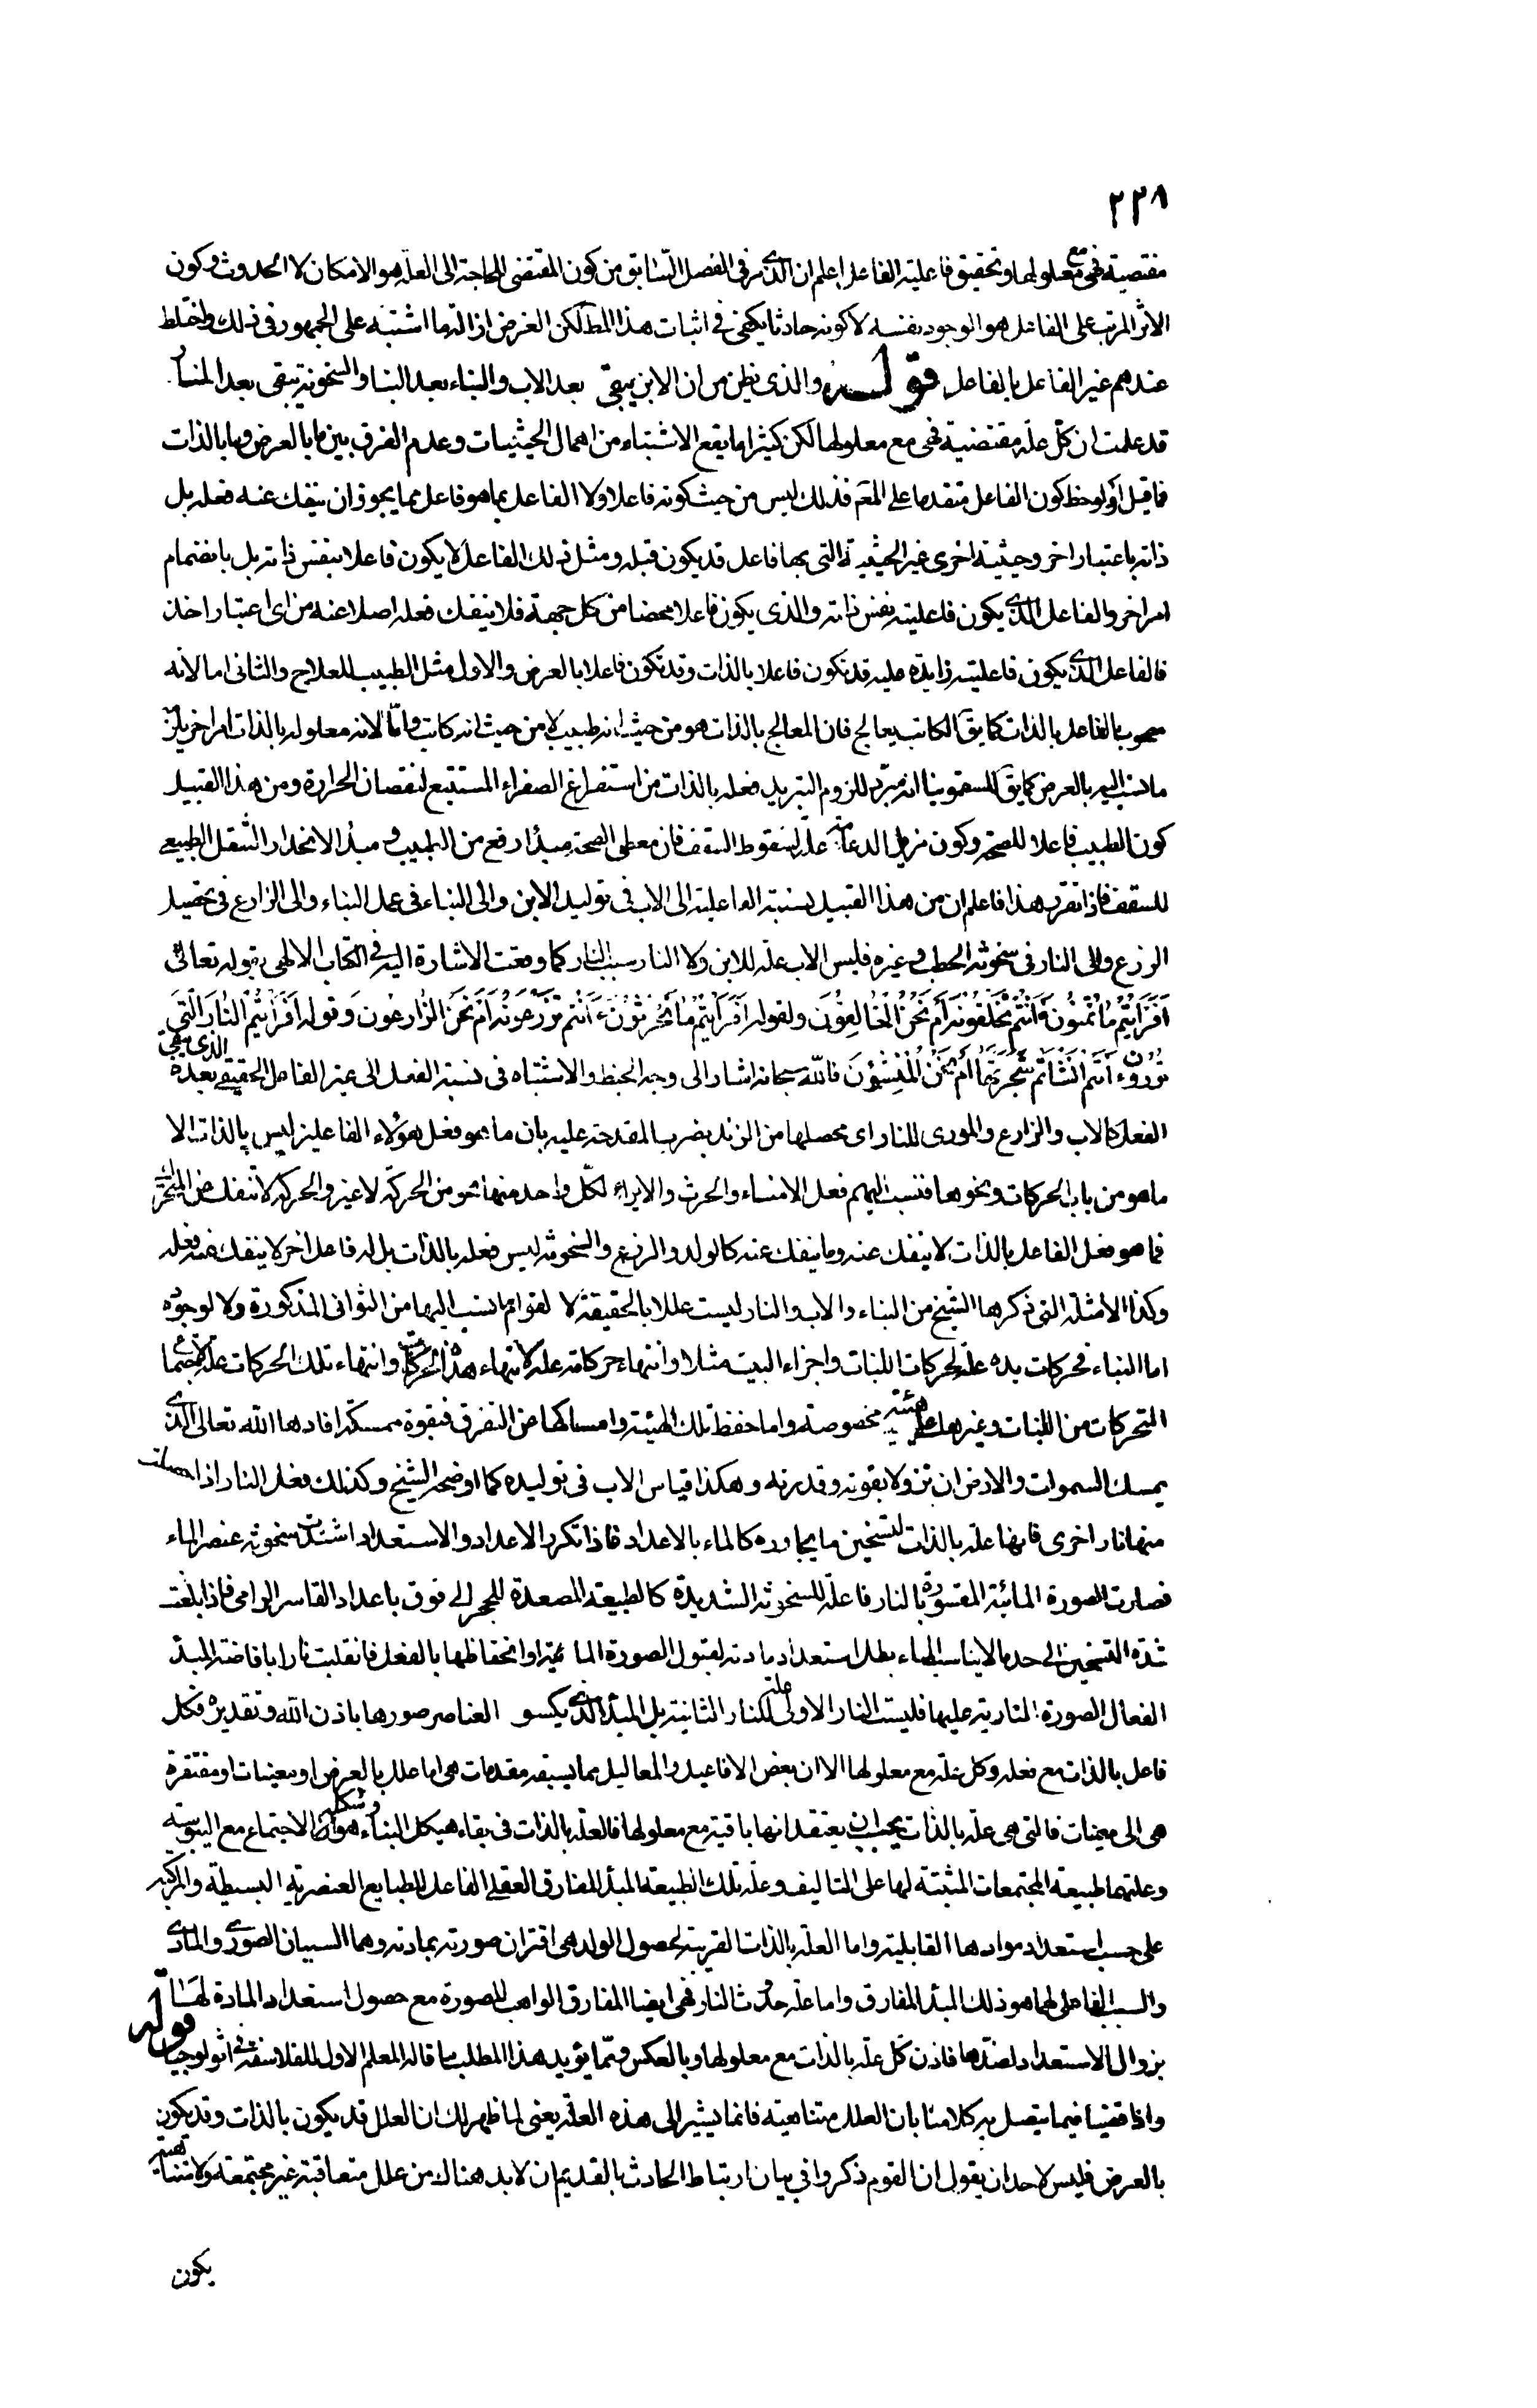 ٢٢٨
مقتضية فهى مع معلولها وتحقيق فاعلية الفاعل اعلم ان الذى مر فى الفصل السابق من كون المقتضى للحاجة الى العلة هو الامكان لا الحدوث وكون
الاثر المرتب على الفاعل هو الوجود بنفسه لا كونه حادثا يكفى فى اثبات هذا المط لكن الغرض ازالة ما اشتبه على الجمهور فى ذلك واختلط
عندهم غير الفاعل بالفاعل قوله والذى يظن من ان الابن يبقى بعد الاب والبناء بعد البناء والسخونة تبقى بعد النار
قد علمت ان كل علة مقتضية فهى مع معلولها لكن كثيرا ما يقع الاشتباه من اهمال الحيثيات وعدم الفرق بين ما بالعرض وما بالذات
فما قيل او لوحظ كون الفاعل متقدما على المعم فذلك ليس من حيث كونه فاعلا ولا الفاعل بما هو فاعل مما يجوز ان ينفك عنه فعله بل
ذاته باعتبار اخر وحيثية اخرى غير الحيثية التى بها فاعل قد يكون قبله ومثل ذلك الفاعل لا يكون فاعلا بنفس ذاته بل بانضمام
امر اخر والفاعل الذى يكون فاعليته بنفس ذاته والذى يكون فاعلا محضا من كل جهة فلا ينفك فعله اصلا عنه من اى اعتبار اخذ
فالفاعل الذى يكون فاعليته زايدة عليه قد تكون فاعلا بالذات وقد تكون فاعلا بالعرض والاول مثل الطبيب للعلاج والثانى اما لانه
مصحوب بالفاعل بالذات كما يق الكاتب يعالج فان المعالج بالذات هو من حيث انه طبيب لا من حيث انه كاتب واما لانه معلوله بالذات امر اخر يلزمه
ما نسب اليه بالعرض كما يق للسقمونيا انه مبرد للزوم التبريد فعله بالذات من استفراغ الصفراء المستتبع لنقصان الحرارة ومن هذا القبيل
كون الطبيب فاعلا للصحة وكون مزيل الدعامة علة لسقوط السقف فان معطى الصحة مبدأ ارفع من الطبيب ومبدأ الانحدار الثقل الطبيعى
للسقف فاذا تقرر هذا فاعلم ان من هذا القبيل نسبة الفاعلية الى الاب فى توليد الابن والى البناء فى عمل البناء والى الزارع فى تحصيل
الزرع والى النار فى سخونة الحطب وغيره فليس الاب علة للابن ولا النار سبب النار كما وقعت الاشارة اليه فى الكتاب الالهى بقوله تعالى
اَفَرَاَيْتُمْ مَا تُمْنُونَ ءَاَنْتُمْ تَخْلُقُونَهُ اَمْ نَحْنُ الْخَالِقُونَ ولقوله اَفَرَاَيْتُمْ مَا تَحْرُثُونَ ءَاَنْتُمْ تَزْرَعُونَهُ اَمْ نَحْنُ الزَّارِعُونَ وقوله اَفَرَاَيْتُمُ النَّارَ الَّتِى
تُورُونَ ءَاَنْتُمْ اَنْشَاْتُمْ شَجَرَتَهَا اَمْ نَحْنُ الْمُنْشِؤُنَ فالله سبحانه اشار الى وجه الخبط والاشتباه فى نسبة الفعل الى غير الفاعل الحقيقى الذى يبقى بعده
الفعل كالاب والزارع والمورى للنار اى محصلها من الزند بضرب المقدحة عليه بان ما هو فعل هؤلاء الفاعلين ليس بالذات الا
ما هو من باب الحركات ونحوها فنسب اليهم فعل الامناء والحرث والايراء لكل واحد منها نحو من الحركة لا غير والحركة لا تنفك عن المتحرك
فما هو فعل الفاعل بالذات لا ينفك عنه وما ينفك عنه كالولد والزرع والسخونة ليس فعله بالذات بل له فاعل اخر لا ينفك عنه فعله
وكذا الامثلة التى ذكرها الشيخ من البناء والاب والنار ليست عللا بالحقيقة لا لقوام ما نسب اليها من الثوانى المذكورة ولا لوجوده
اما البناء فحركات يده علة لحركات اللبنات واجزاء البيت مثلا وانتهاء حركاته علة لانتهاء هذه الحركات وانتهاء تلك الحركات علة لاجتماع
المتحركات من اللبنات وغيرها على هيئة مخصوصة واما حفظ تلك الهيئة وامساكها عن التفرق فبقوة ممسكة افادها الله تعالى الذى
يمسك السموات والارض ان تزولا بقوته وقدرته وهكذا قياس الاب فى توليده كما اوضحه الشيخ وكذلك فعل النار اذا حصلت
منها نار اخرى فانها علة بالذات لتسخين ما يجاوره كالماء بالاعداد فاذا تكرر الاعداد والاستعداد اشتدت سخونة عنصر الماء
فصارت الصورة المائية المقسورة بالنار فاعلة للسخونة الشديدة كالطبيعة المصعدة للحجر الى فوق باعداد القاسر الرامى فاذا بلغت
شدة التسخين الى حد ما لا يناسب الماء بطل استعداد مادته لقبول الصورة المائية او انحفاظها بالفعل فانقلبت نارا بافاضة المبدأ
الفعال الصورة النارية عليها فليست النار الاولى علة للنار الثانية بل المبدأ الذى يكسو العناصر صورها باذن الله وتقديره فكل
فاعل بالذات مع فعله وكل علة مع معلولها الا ان بعض الافاعيل والمعاليل مما يسبقه مقدمات هى اما علل بالعرض او معينات او مفتقرة
هى الى معينات فالتى هى علة بالذات يجب ان يعتقد انها باقية مع معلولها فالعلة بالذات فى بقاء هيكل البناء وشكله هو الاجتماع مع اليبوسة
وعلتهما طبيعة المجتمعات المثبتة لها على التاليف وعلة تلك الطبيعة المبدأ المفارق العقلى الفاعل للطبايع العنصرية البسيطة والمركبة
على حسب استعداد موادها القابلية واما العلة بالذات القريبة لحصول الولد هى اقتران صورته بمادته وهما السببان الصورى والمادى
والسبب الفاعلى لهما هو ذلك المبدأ المفارق واما علة حدوث النار فهى ايضا المفارق الواهب للصورة مع حصول استعداد المادة لها
بزوال الاستعداد لضدها فاذن كل علة بالذات مع معلولها وبالعكس ومما يؤيد هذا المطلب ما قاله المعلم الاول للفلاسفة فى اثولوجيا قوله
واذا قضينا فيما يتصل به كلامنا بان العلل متناهية فانما يشير الى هذه العلة يعنى لما ظهر لك ان العلل قد يكون بالذات وقد يكون
بالعرض فليس لاحد ان يقول ان القوم ذكروا فى بيان ارتباط الحادث بالقديم ان لابد هناك من علل متعاقبة غير مجتمعة ولا متناهية
يكون